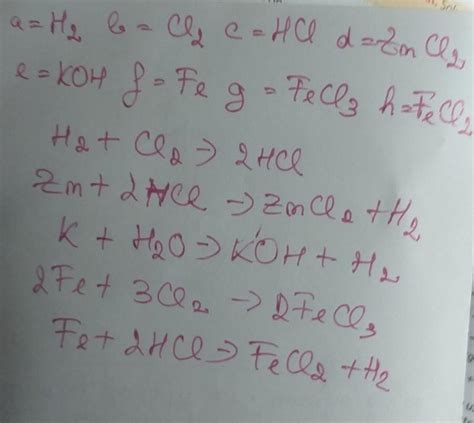 a = H₂ b = Cl₂ c = HCl d = ZnCl₂,
e = KOH f = Fe g = FeCl₃ h = FeCl₂
H₂ + Cl₂ → 2HCl
Zn + 2HCl → ZnCl₂ + H₂
K + H₂O → KOH + H₂
2Fe + 3Cl₂ → 2FeCl₃
Fe + 2HCl → FeCl₂ + H₂